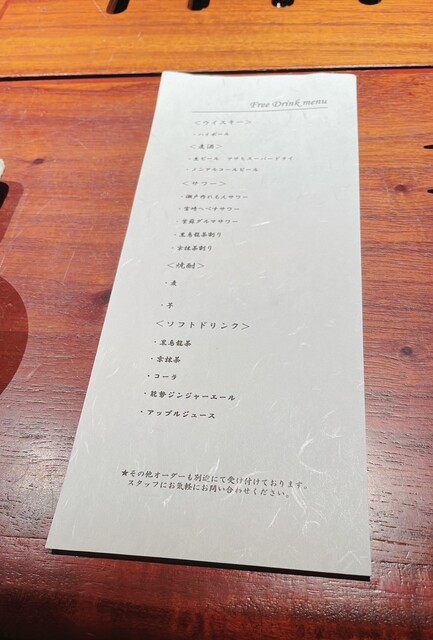 Free Drink menu
＜ウイスキー＞
・ハイボール
＜麦酒＞
・生ビール アサヒスーパードライ
・ノンアルコールビール
＜サワー＞
・瀬戸内れもんサワー
・宮崎へべすサワー
・紫蘇ダルマサワー
・黒烏龍茶割り
・京抹茶割り
＜焼酎＞
・麦
・芋
＜ソフトドリンク＞
・黒烏龍茶
・京抹茶
・コーラ
・能勢ジンジャーエール
・アップルジュース
★その他オーダーも別途にて受け付けております。
スタッフにお気軽にお問い合わせください。